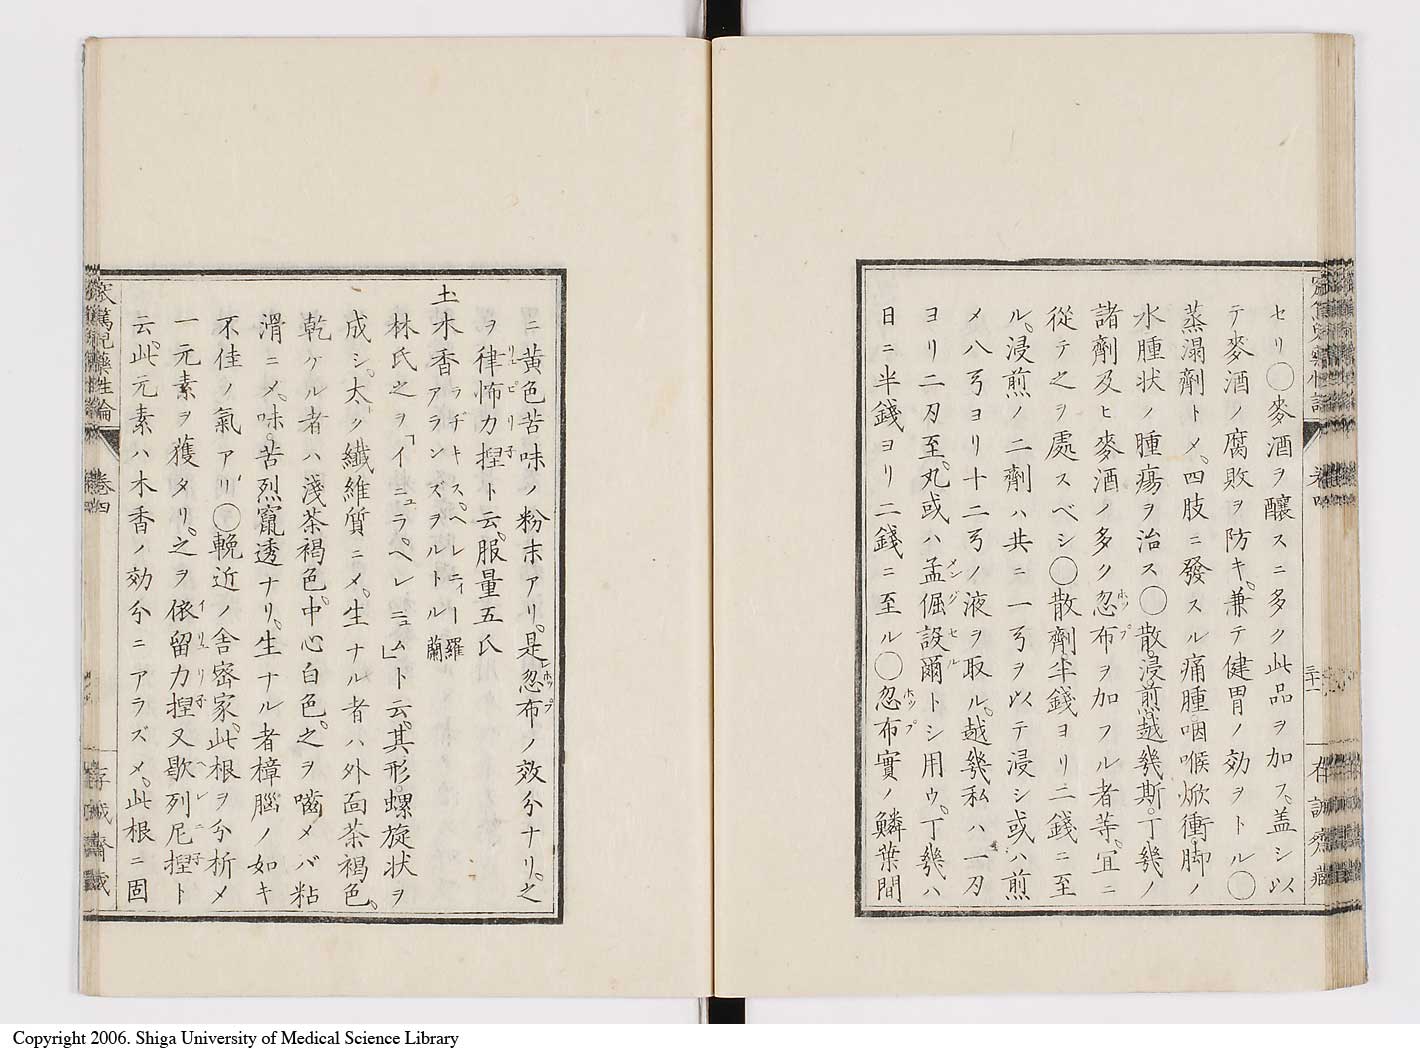 セリ◯麥酒ヲ釀スニ多ク此品ヲ加ス。蓋シ以
テ麥酒ノ腐敗ヲ防キ。兼テ健胃ノ効ヲトル◯
蒸溻劑トメ。四肢ニ發スル痛腫。咽喉焮衝。脚ノ
水腫状ノ腫瘍ヲ治ス◯散。浸煎。越幾斯。丁幾ノ
諸劑及ヒ麥酒ノ多ク忽布ホップヲ加フル者等。宜ニ
從テ之ヲ處スベシ◯散劑半錢ヨリ二錢ニ至
ル。浸煎ノ二劑ハ共ニ一弓ヲ以テ浸シ或ハ煎
メ八弓ヨリ十二弓ノ液ヲ取ル。越幾私ハ一刃
ヨリ二刃至。丸。或ハ孟倔設爾メングセルトシ用ウ。丁幾ハ
日ニ半錢ヨリ二錢ニ至ル◯忽布ホップ實ノ鱗葉間
ニ黄色苦味ノ粉末アリ。是忽布ホップノ效分ナリ。之
ヲ律怖力捏リュピリ子ト云。服量五氏
土木香アランズヲルトル 蘭 ラヂキス。ヘレニィー 羅
林氏之ヲ「イニュラ。ヘレニュム」ト云。其形。螺旋状ヲ
成シ。太ク纖維質ニメ。生ナル者ハ外面茶褐色。
乾ケル者ハ淺茶褐色。中心白色。之ヲ嚙メバ粘
滑ニメ。味苦烈竄透ナリ。生ナル者樟腦ノ如キ
不佳ノ氣アリ◯輓近ノ舎密家。此根ヲ分析メ
一元素ヲ獲タリ。之ヲ依留力捏イリュリ子又歇列尼捏ヘレニ子ト
云。此元素ハ木香ノ効分ニアラズメ。此根ニ固
篤兒藥性論
卷四
三十一
Copyright 2006. Shiga University of Medical Science Library